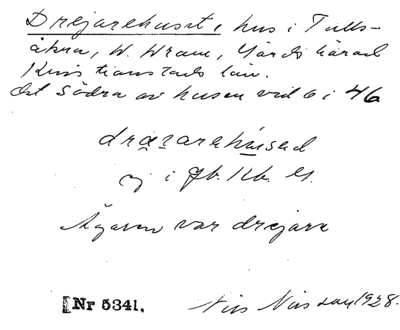 Drejarehuset, hus i Tulls-
åkra, W. Wram, Gärds härad
Kristianstads län.
Det södra av husen vid 6 i 46
ej i Jb. Kb. El.
Ägaren var drejare
Nr 5341.
Nils Nilsson 1928.